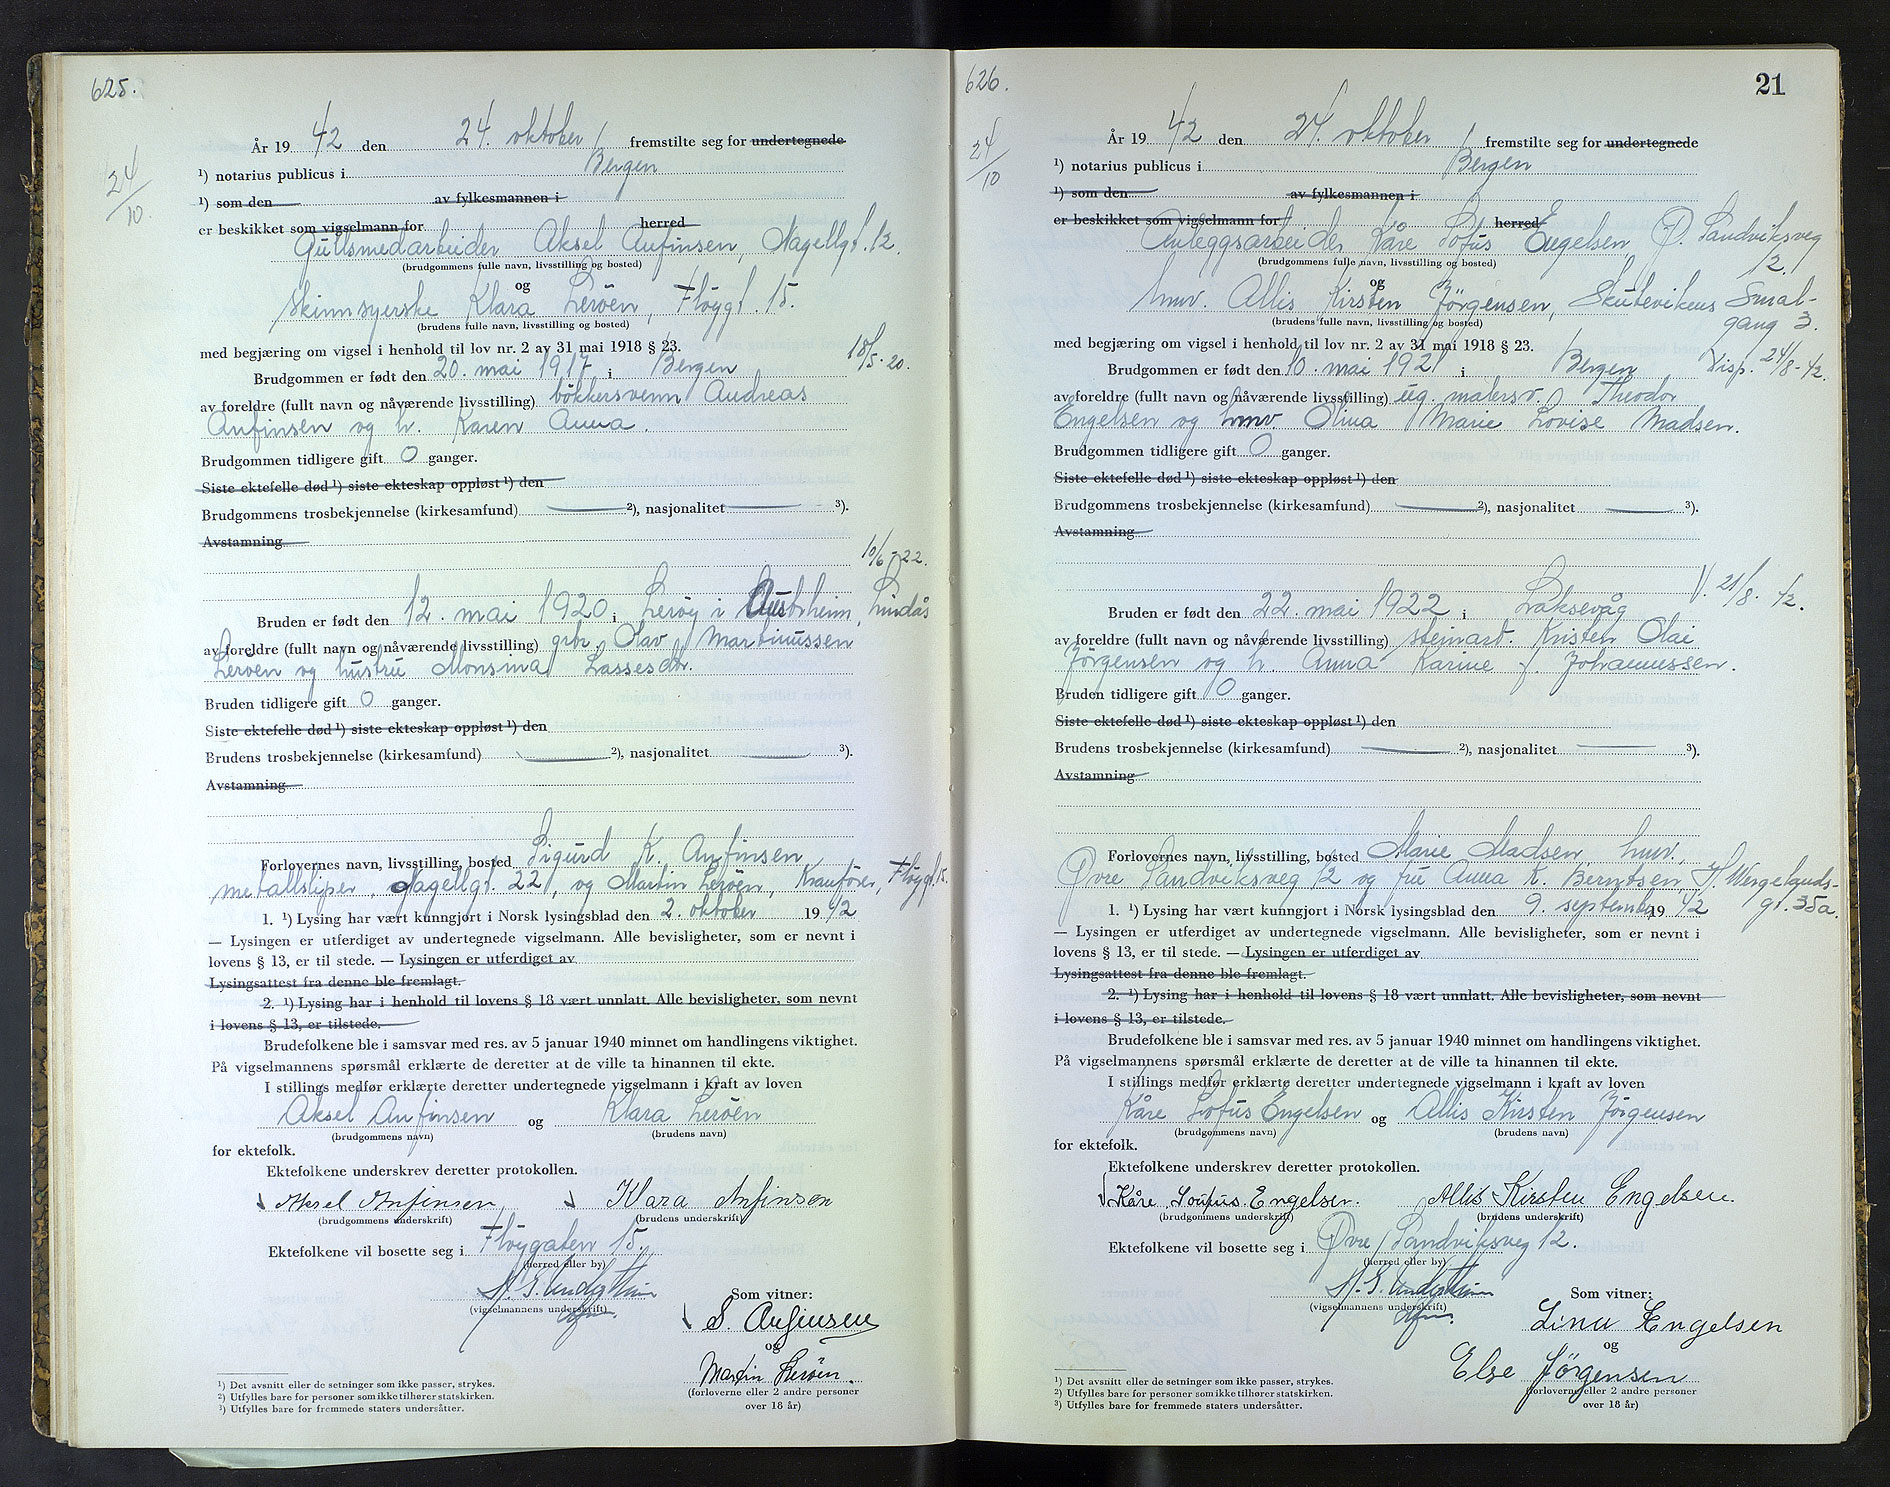 625.
24/10.
År 19 42 den 24. oktober fremstilte seg for undertegnede
¹) notarius publicus i Bergen
¹) som den av fylkesmannen i
er beskikket som vigselmann for herred
Gullsmedarbeider Aksel Anfinsen, Nagellgt. 12.
(brudgommens fulle navn, livsstilling og bosted)
og
skinnsyerske Klara Leröen, Fløygt. 15.
(brudens fulle navn, livsstilling og bosted)
med begjæring om vigsel i henhold til lov nr. 2 av 31 mai 1918 § 23.
18/5-20.
Brudgommen er født den 20. mai 1917 i Bergen
av foreldre (fullt navn og nåværende livsstilling) bökkersvenn Andreas
Anfinsen og h. Karen Anna.
Brudgommen tidligere gift 0 ganger.
Siste ektefelle død ¹) siste ekteskap oppløst ¹) den
Brudgommens trosbekjennelse (kirkesamfund) — ²), nasjonalitet — ³).
Avstamning
10/6-22.
Bruden er født den 12. mai 1920 i Leröy i Austrheim, Lindås
av foreldre (fullt navn og nåværende livsstilling) grbr. Olav Martinussen
Leröen og hustru Monsina Lassesdtr.
Bruden tidligere gift 0 ganger.
Siste ektefelle død ¹) siste ekteskap oppløst ¹) den
Brudens trosbekjennelse (kirkesamfund) — ²), nasjonalitet — ³).
Avstamning
Forlovernes navn, livsstilling, bosted Sigurd K. Anfinsen,
metallsliper, Nagellgt. 22, og Martin Leröen, Kranfører, Fløygt. 15.
1. ¹) Lysing har vært kunngjort i Norsk lysingsblad den 2. oktober 19 42
— Lysingen er utferdiget av undertegnede vigselmann. Alle bevisligheter, som er nevnt i
lovens § 13, er til stede. — Lysingen er utferdiget av
Lysingsattest fra denne ble fremlagt.
2. ¹) Lysing har i henhold til lovens § 18 vært unnlatt. Alle bevisligheter, som nevnt
i lovens § 13, er tilstede.
Brudefolkene ble i samsvar med res. av 5 januar 1940 minnet om handlingens viktighet.
På vigselmannens spørsmål erklærte de deretter at de ville ta hinannen til ekte.
I stillings medfør erklærte deretter undertegnede vigselmann i kraft av loven
Aksel Anfinsen og Klara Leröen
(brudgommens navn) (brudens navn)
for ektefolk.
Ektefolkene underskrev deretter protokollen.
Aksel Anfinsen, Klara Anfinsen
(brudgommens underskrift) (brudens underskrift)
Ektefolkene vil bosette seg i Fløygaten 15.
(herred eller by)
(vigselmannens underskrift)
Som vitner:
S. Anfinsen
og
Martin Leröen.
(forloverne eller 2 andre personer
over 18 år)
¹) Det avsnitt eller de setninger som ikke passer, strykes.
²) Utfylles bare for personer som ikke tilhører statskirken.
³) Utfylles bare for fremmede staters undersåtter.
626.
21
24/10
År 19 42 den 24. oktober fremstilte seg for undertegnede
¹) notarius publicus i Bergen
¹) som den av fylkesmannen i
er beskikket som vigselmann for herred
Anleggsarbeider Kåre Lofus Engelsen, Ø. Sandviksveg
12.
(brudgommens fulle navn, livsstilling og bosted)
og
hmv. Allis Kirsten Jörgensen, Skutevikens Smal-
gang 3.
(brudens fulle navn, livsstilling og bosted)
med begjæring om vigsel i henhold til lov nr. 2 av 31 mai 1918 § 23.
Disp. 24/8-42.
Brudgommen er født den 10. mai 1921 i Bergen
av foreldre (fullt navn og nåværende livsstilling) ug. malersv. Theodor
Engelsen og hmv. Olina Marie Lovise Madsen.
Brudgommen tidligere gift 0 ganger.
Siste ektefelle død ¹) siste ekteskap oppløst ¹) den
Brudgommens trosbekjennelse (kirkesamfund) — ²), nasjonalitet — ³).
Avstamning
V. 21/8. 42.
Bruden er født den 22. mai 1922 i Laksevåg
av foreldre (fullt navn og nåværende livsstilling) steinarb. Kristen Olai
Jörgensen og h. Anna Karine f. Johannussen.
Bruden tidligere gift 0 ganger.
Siste ektefelle død ¹) siste ekteskap oppløst ¹) den
Brudens trosbekjennelse (kirkesamfund) — ²), nasjonalitet — ³).
Avstamning
Forlovernes navn, livsstilling, bosted Marie Madsen, hmv.,
Øvre Sandviksveg 12 og fru Anna K. Berntsen, H. Wergelands-
gt. 35a.
1. ¹) Lysing har vært kunngjort i Norsk lysingsblad den 9. september 19 42
— Lysingen er utferdiget av undertegnede vigselmann. Alle bevisligheter, som er nevnt i
lovens § 13, er til stede. — Lysingen er utferdiget av
Lysingsattest fra denne ble fremlagt.
2. ¹) Lysing har i henhold til lovens § 18 vært unnlatt. Alle bevisligheter, som nevnt
i lovens § 13, er tilstede.
Brudefolkene ble i samsvar med res. av 5 januar 1940 minnet om handlingens viktighet.
På vigselmannens spørsmål erklærte de deretter at de ville ta hinannen til ekte.
I stillings medfør erklærte deretter undertegnede vigselmann i kraft av loven
Kåre Lofus Engelsen og Allis Kirsten Jörgensen
(brudgommens navn) (brudens navn)
for ektefolk.
Ektefolkene underskrev deretter protokollen.
Kåre Loufus Engelsen. Allis Kirsten Engelsen.
(brudgommens underskrift) (brudens underskrift)
Ektefolkene vil bosette seg i Øvre Sandviksveg 12.
(herred eller by)
(vigselmannens underskrift)
Som vitner:
Lina Engelsen
og
Else Jørgensen
(forloverne eller 2 andre personer
over 18 år)
¹) Det avsnitt eller de setninger som ikke passer, strykes.
²) Utfylles bare for personer som ikke tilhører statskirken.
³) Utfylles bare for fremmede staters undersåtter.